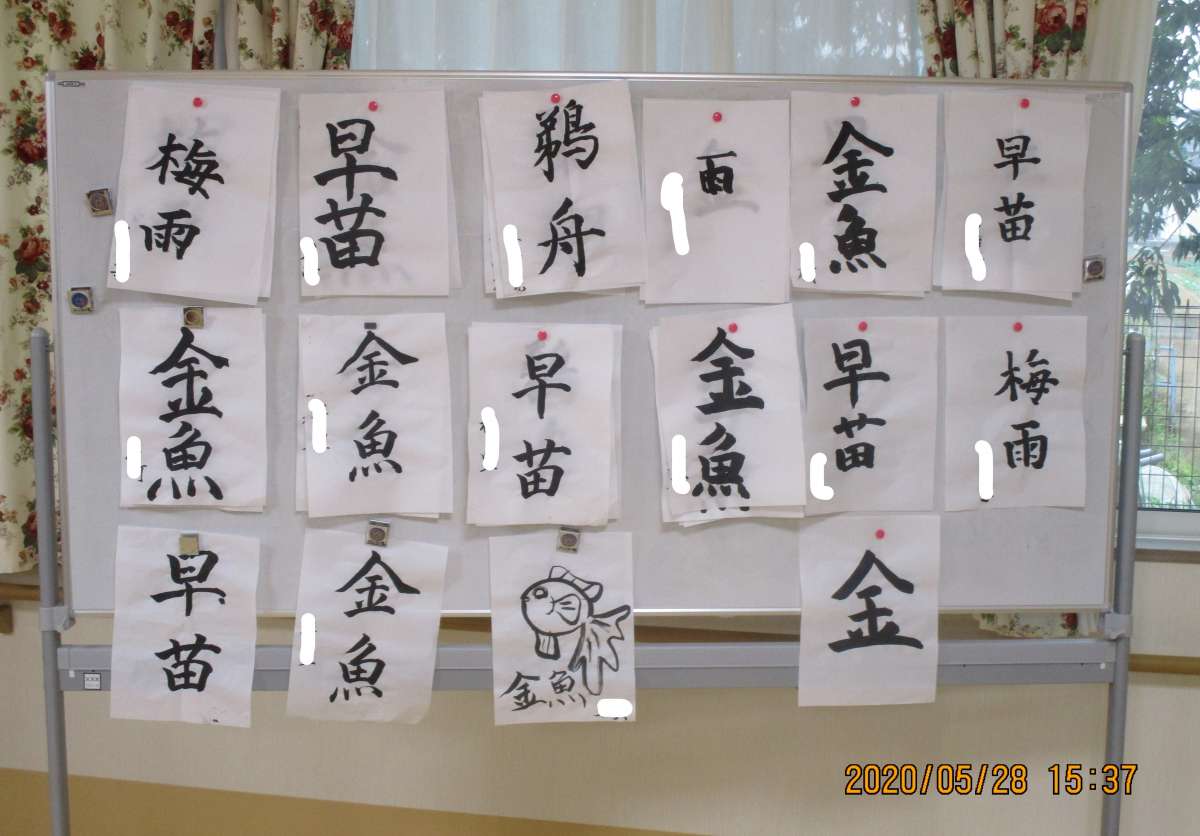 梅雨
早苗
鵜舟
雨
金魚
早苗
金魚
金魚
早苗
金魚
早苗
梅雨
早苗
金魚
金魚
金
2020/05/28 15:37